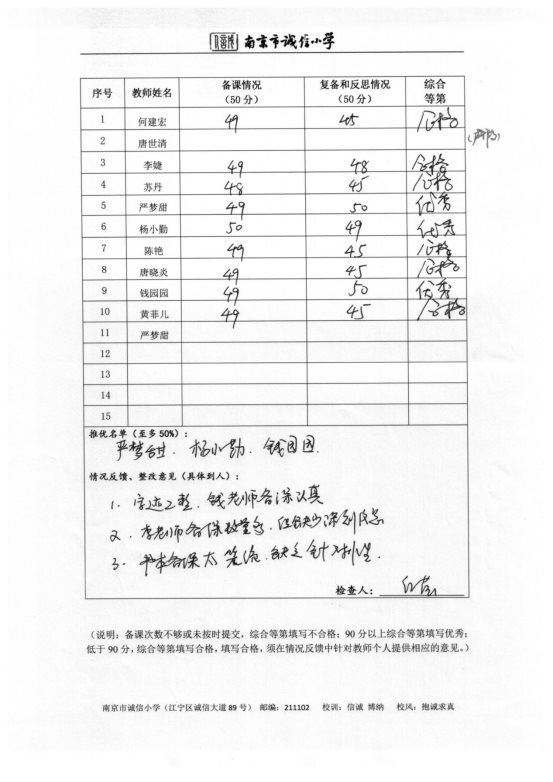 南京市诚信小学
序号 教师姓名 备课情况（50分） 复备和反思情况（50分） 综合等第
1 何建宏 49 45 合格
2 唐世清
3 李婕 49 48 合格
4 苏丹 48 45 合格
5 严梦甜 49 50 优秀
6 杨小勤 50 49 优秀
7 陈艳 49 45 合格
8 唐晓炎 49 45 合格
9 钱园园 49 50 优秀
10 黄菲儿 49 45 合格
11 严梦甜
12
13
14
15
推优名单（至多50%）：
严梦甜. 杨小勤. 钱园园.
情况反馈、整改意见（具体到人）：
1. 字迹工整. 钱老师备课认真
2. 李老师备课数量多, 但缺少深刻反思
3. 书本备课太笼统. 缺乏针对性
检查人：
（说明：备课次数不够或未按时提交，综合等第填写不合格；90分以上综合等第填写优秀；
低于90分，综合等第填写合格，填写合格，须在情况反馈中针对教师个人提供相应的意见。）
南京市诚信小学（江宁区诚信大道89号） 邮编：211102 校训：信诚 博纳 校风：抱诚求真